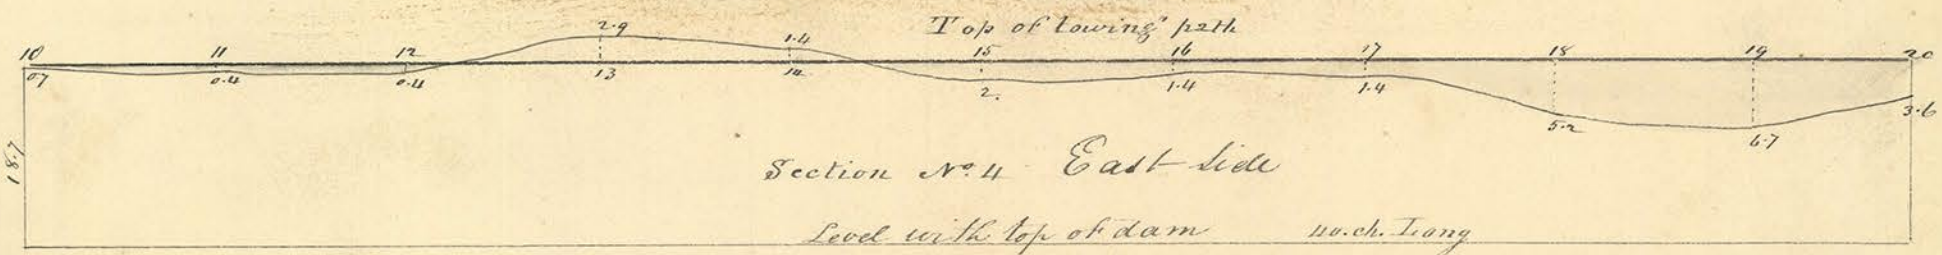 Top of towing path
10 11 12 2.9 1.4 15 16 17 18 19 20
0.7 0.4 0.4 13 14 2. 1.4 1.4 5.2 6.7 3.6
18.7
Section No. 4 East Side
Level with top of dam 40.ch. Long